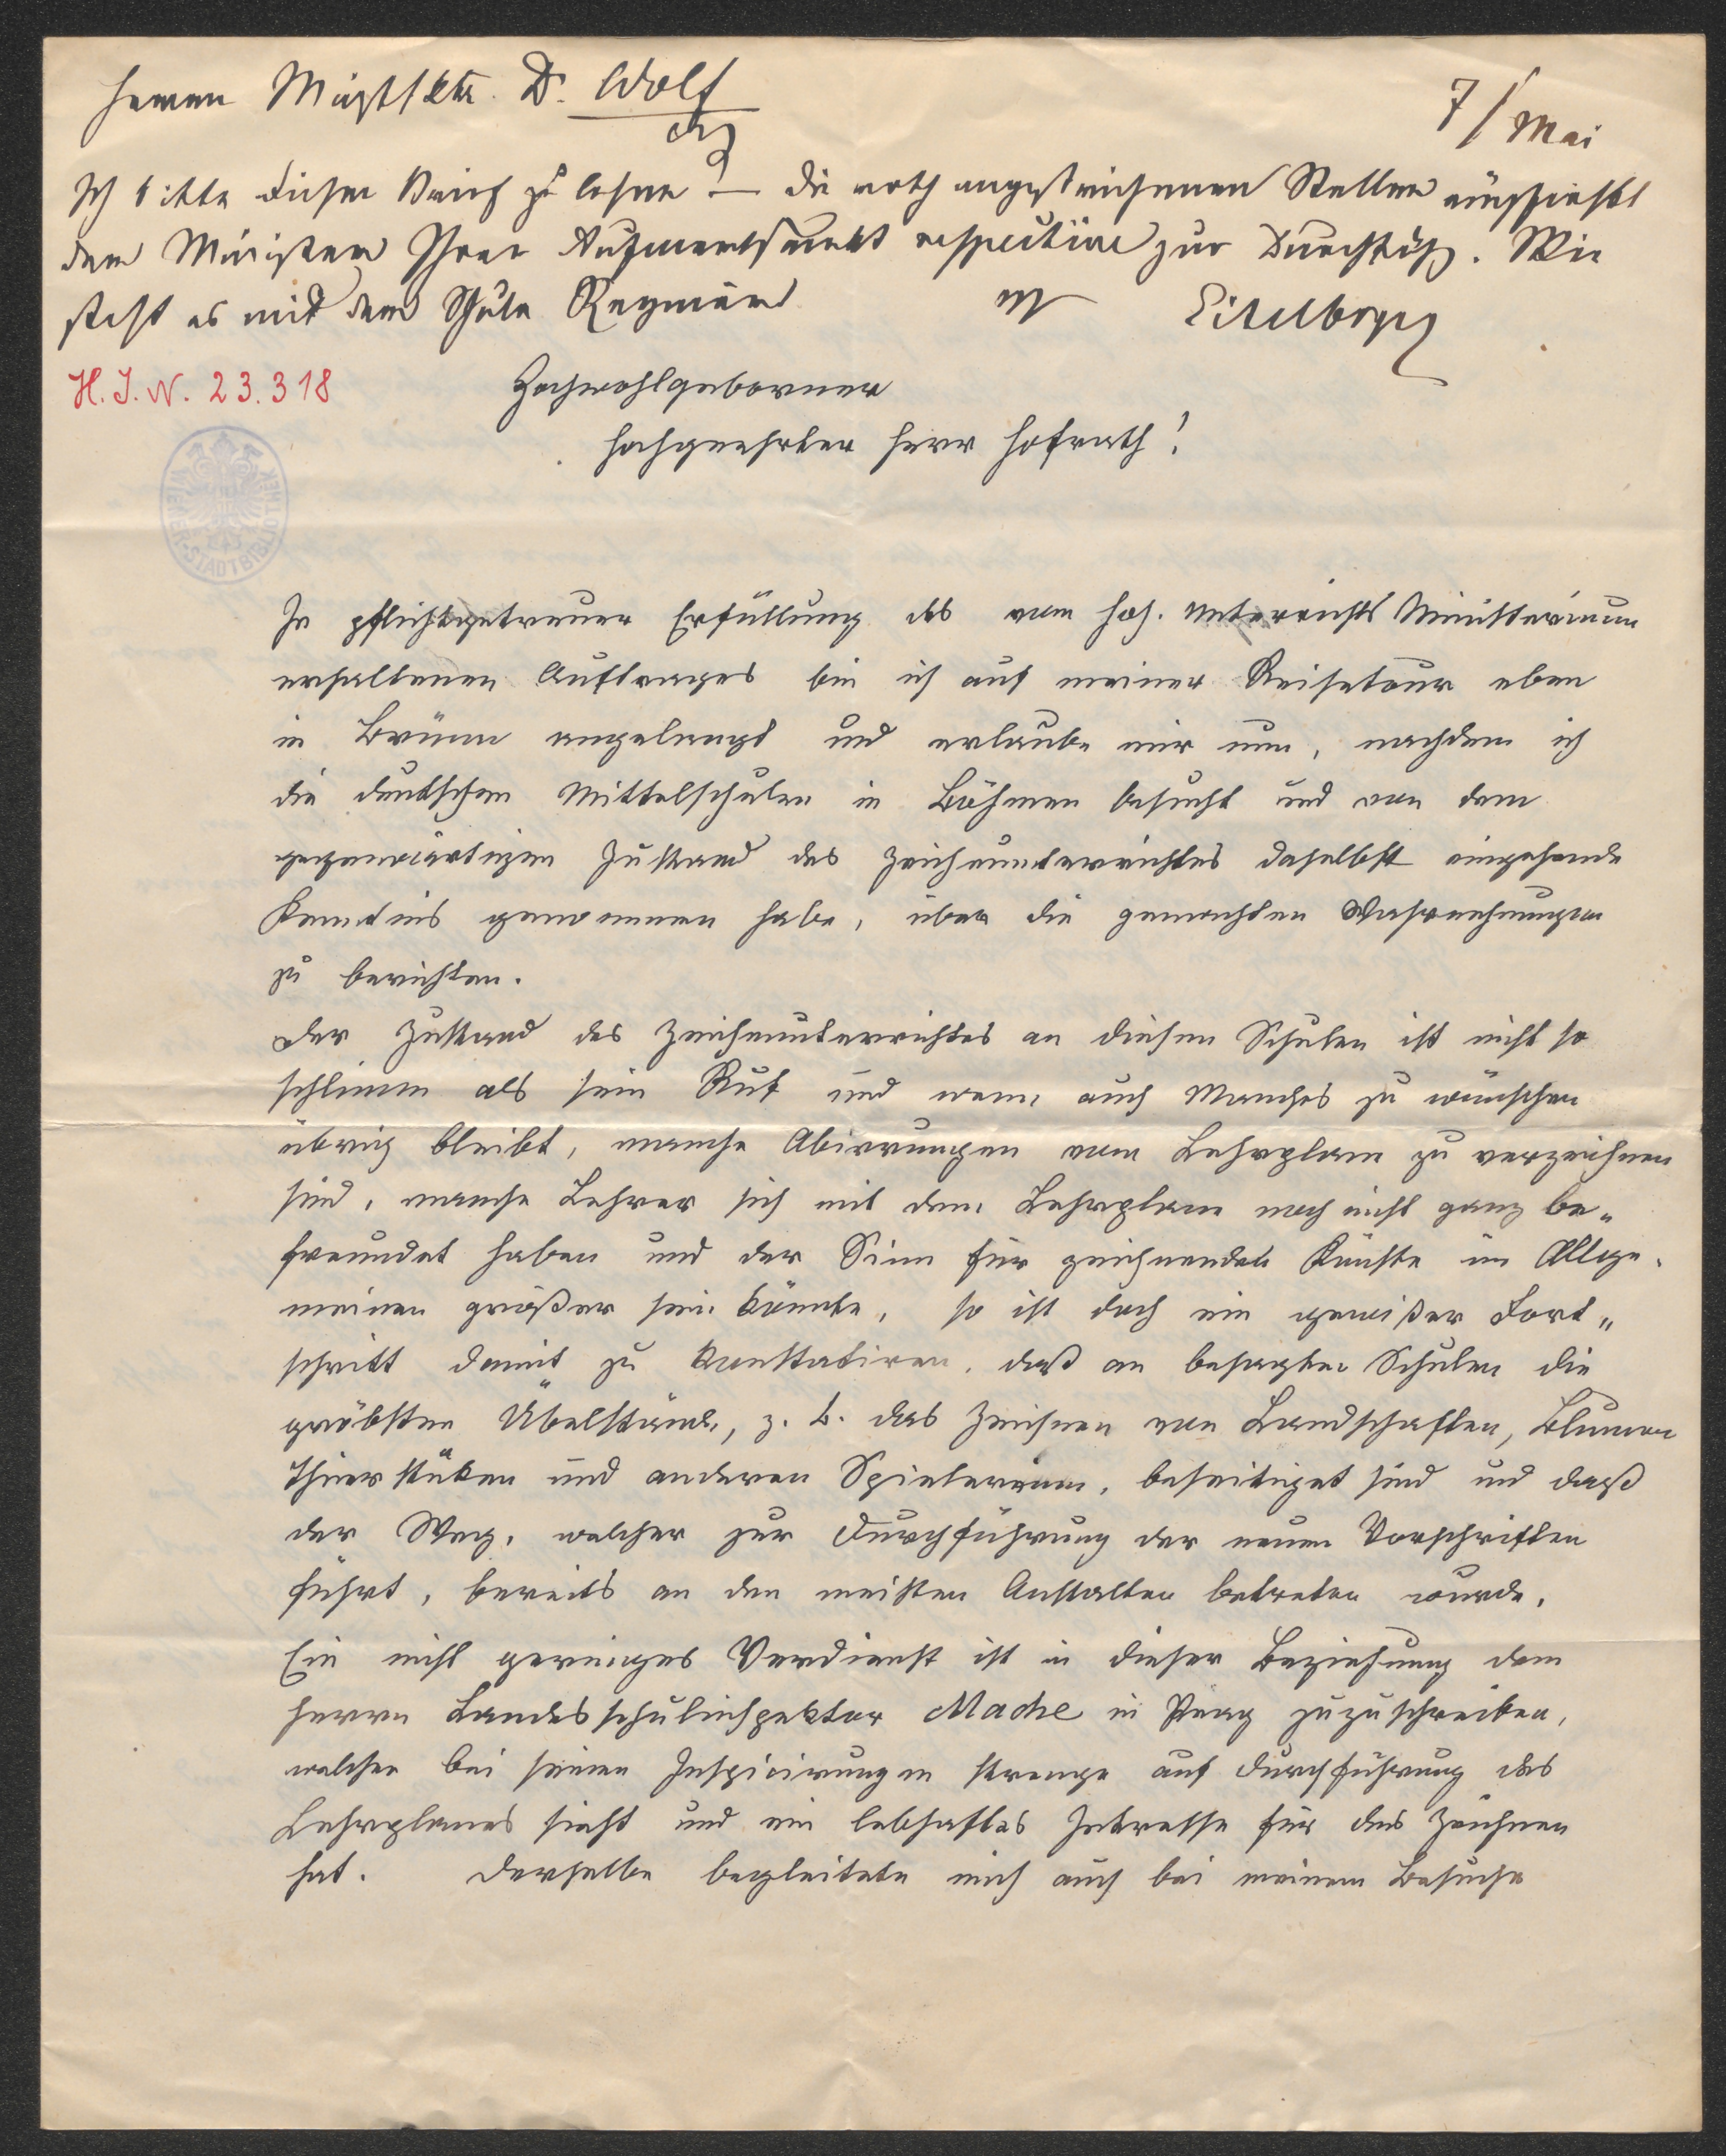 Herrn Dr. Wolf
7/ Mai
Ich bitte diesen Brief zu lesen – die roth angestrichenen Stellen empfiehlt
dem Minister Ihrer Aufmerksamkeit respective zur Durchsicht. Wie
steht es mit dem
Eitelberger
H. I. N. 23.318
Hochwohlgeborner
hochgeehrter Herr Hofrath!
WIENER-STADTBIBLIOTHEK
In pflichtgetreuer Erfüllung des vom hoh. Unterrichts Ministerium
erhaltenen Auftrages bin ich auf meiner Reisetour eben
in Brünn angelangt und erlaube mir nun, nachdem ich
die deutschen Mittelschulen in Böhmen besucht und von dem
gegenwärtigen Zustand des Zeichenunterrichtes daselbst eingehende
Kenntnis genommen habe, über die gemachten Wahrnehmungen
zu berichten.
Der Zustand des Zeichenunterrichtes an diesen Schulen ist nicht so
schlimm als sein Ruf und wenn auch Manches zu wünschen
übrig bleibt, manche Abirrungen vom Lehrplane zu verzeichnen
sind, manche Lehrer sich mit dem Lehrplane noch nicht ganz be„
freundet haben und der Sinn für zeichnenden Künste im Allge„
meinen größer sein könnte, so ist doch ein gewißer Fort„
schritt damit zu konstatiren, daß an besagten Schulen die
gröbsten Übelstände, z. B. das Zeichnen von Landschaften, Blumen
Thierstüken und anderen Spielereien, beseitiget sind und daß
der Weg, welcher zur Durchführung der neuen Vorschriften
führt, bereits an den meisten Anstalten betreten wurde.
Ein nicht geringes Verdienst ist in dieser Beziehung dem
Herrn Landesschulinspektor Mache in Prag zuzuschreiben,
welcher bei seinen Inspicirungen strenge auf Durchführung des
Lehrplanes sieht und ein lebhaftes Intresse für das Zeichnen
hat. Derselbe begleitete mich auch bei meinem Besuche